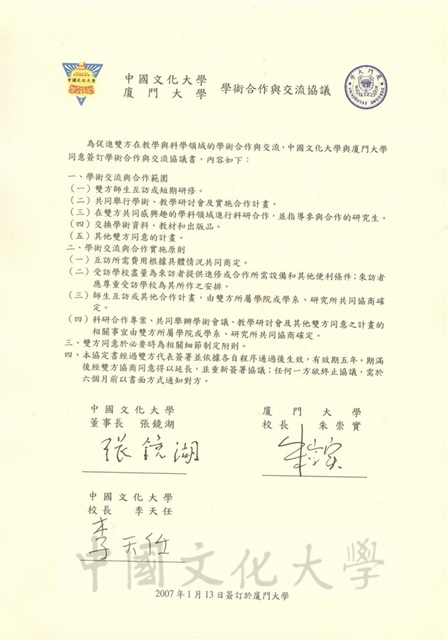 中國文化大學
廈門大學 學術合作與交流協議
為促進雙方在教學與科學領域的學術合作與交流,中國文化大學與廈門大學
同意簽訂學術合作與交流協議書,內容如下:
一、學術交流與合作範圍
(一)雙方師生互訪或短期研修。
(二)共同舉行學術、教學研討會及實施合作計畫。
(三)在雙方共同感興趣的學科領域進行科研合作,並指導參與合作的研究生。
(四)交換學術資料、教材和出版品。
(五)其他雙方同意的計畫。
二、學術交流與合作實施原則
(一)互訪所需費用根據具體情況共同商定。
(二)受訪學校盡量為來訪者提供進修或合作所需設備和其他便利條件;來訪者
應尊重受訪學校為其所作之安排。
(三)師生互訪或其他合作計畫,由雙方所屬學院或學系、研究所共同協商確
定。
(四)科研合作專案、共同舉辦學術會議、教學研討會及其他雙方同意之計畫的
相關事宜由雙方所屬學院或學系、研究所共同協商確定。
三、雙方同意於必要時為相關細節制定附則。
四、本協定書經過雙方代表簽署並依據各自程序通過後生效,有效期五年。期滿
後經雙方協商同意得以延長,並重新簽署協議;任何一方欲終止協議,需於
六個月前以書面方式通知對方。
中國文化大學
董事長 張鏡湖
張鏡湖
廈門大學
校長 朱崇實
朱崇實
中國文化大學
校長 李天任
李天任
中國文化大學
2007年1月13日簽訂於廈門大學